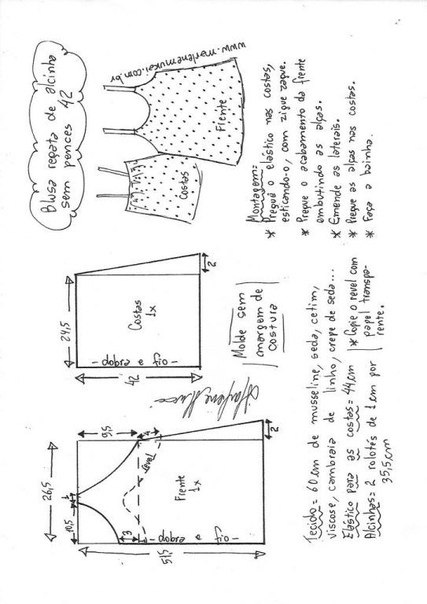 Blusa regata de alcinha
sem pences 42
www.marlenemukai.com.br
Costas
Frente
Montagem:
* Pregue o elástico nas costas,
esticando-o, com zigue zague.
* Pregue o acabamento da frente
embutindo as alças.
* Emende as laterais.
* Pregue as alças nas costas.
* Faça a bainha.
24,5
Costas
1x
- dobra e fio -
42
2
Molde sem
margem de
costura
Marlene Mukai
26,5
10,5
1
9,5
4
3
revel
Frente
1x
- dobra e fio -
51,5
2
Tecido = 60 cm de musseline, seda, cetim,
viscose, cambraia de linho, crepe de seda...
Elástico para as costas = 44 cm
Alcinhas = 2 rolotês de 1 cm por
35,5 cm
* Copie o revel com
papel transpa-
rente.